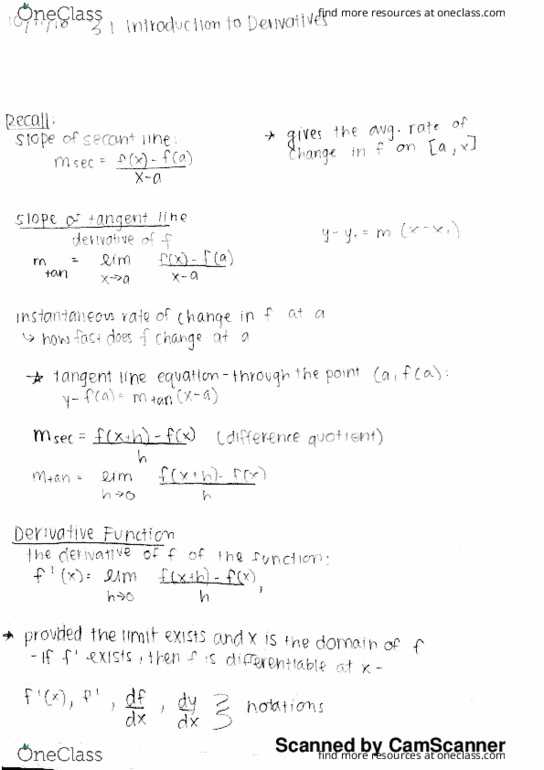 OneClass
find more resources at oneclass.com
3.1 Introduction to Derivatives
Recall:
slope of secant line:
m sec = f(x) - f(a) / x-a
* gives the avg. rate of
change in f on [a,x]
slope of tangent line
derivative of f
m tan = lim x→a f(x) - f(a) / x-a
y-y₁ = m (x-x₁)
instantaneous rate of change in f at a
↳ how fast does f change at a
* tangent line equation - through the point (a, f(a):
y - f(a) = m tan (x-a)
m sec = f(x+h) - f(x) / h (difference quotient)
m tan = lim h→0 f(x+h) - f(x) / h
Derivative Function
the derivative of f of the function:
f'(x) = lim h→0 f(x+h) - f(x) / h ,
* provided the limit exists and x is the domain of f
- If f' exists, then f is differentiable at x -
f'(x), f', df/dx, dy/dx } notations
Scanned by CamScanner
OneClass
find more resources at oneclass.com